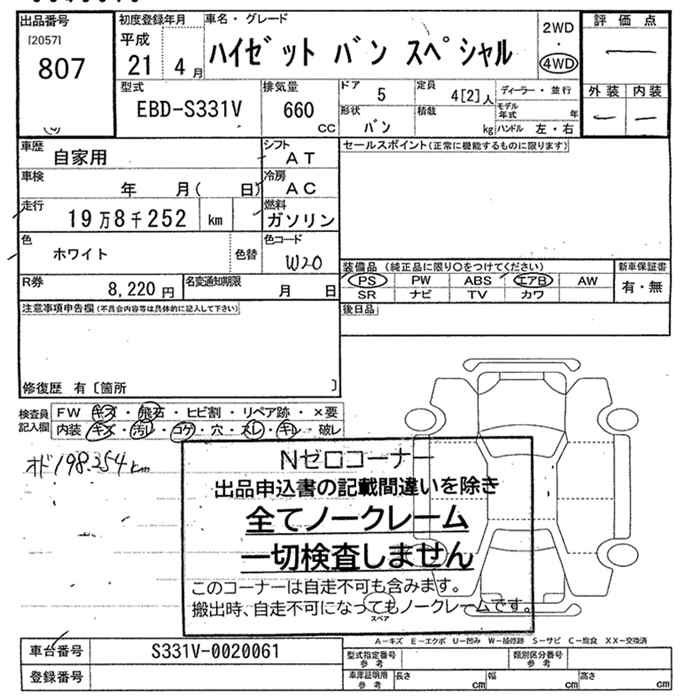 出品番号 初度登録年月 車名・グレード 2WD 評価点
[2057] 平成 ハイゼット バン スペシャル 4WD
807 21 4月
外装 内装
型式 排気量 ドア 5 定員 4[2]人 ディーラー・並行
EBD-S331V 660 CC 形状 バン 積載 kg モデル年式 年
ハンドル 左・右
車歴 自家用 シフト AT セールスポイント(正常に機能するものに限ります)
車検 年 月( 日) 冷房 AC
走行 19万8千252 km 燃料 ガソリン
色 ホワイト 色替 色コード W20
装備品(純正品に限り○をつけてください) 新車保証書
R券 8,220円 名変通知期限 月 日 PS PW ABS エアB AW 有・無
SR ナビ TV カワ
注意事項申告欄(不具合内容等は具体的に記入して下さい) 後日品
修復歴 有〔箇所 〕
検査員記入欄 FW キズ・飛石・ヒビ割・リペア跡・×要
内装 キズ・汚レ・コゲ・穴・スレ・キレ・破レ
オド198.354km
Nゼロコーナー
出品申込書の記載間違いを除き
全てノークレーム
一切検査しません
このコーナーは自走不可も含みます。
搬出時、自走不可になってもノークレームです。
スペア
A-キズ E-エクボ U-凹み W-補修跡 S-サビ C-腐食 XX-交換済
車台番号 S331V-0020061 型式指定番号 参考 類別区分番号 参考
登録番号 車庫証明用 参考 長さ cm 幅 cm 高さ cm